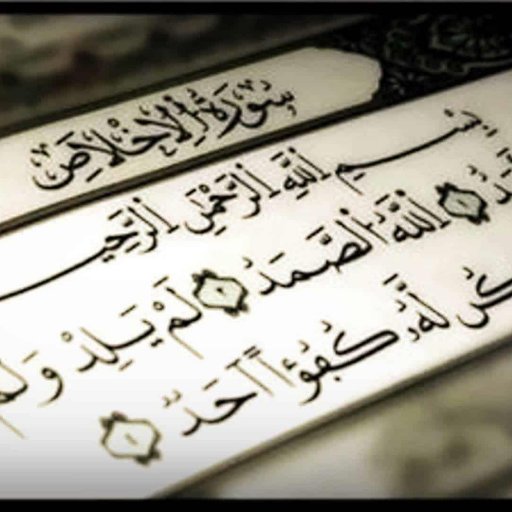 سُورَةُ الْإِخْلَاصِ
بِسْمِ اللَّهِ الرَّحْمَٰنِ الرَّحِيمِ
اللَّهُ الصَّمَدُ لَمْ يَلِدْ وَلَمْ
لَّهُ كُفُوًا أَحَدٌ